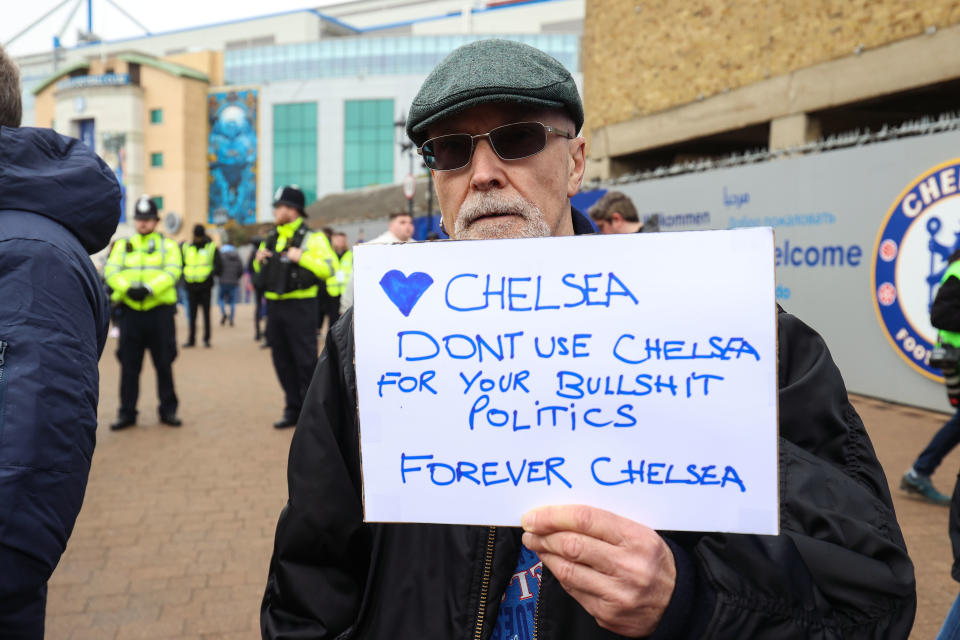 💙 CHELSEA
DONT USE CHELSEA
FOR YOUR BULLSHIT
POLITICS
FOREVER CHELSEA
Добро пожаловать
elcome
CHE
FOOT